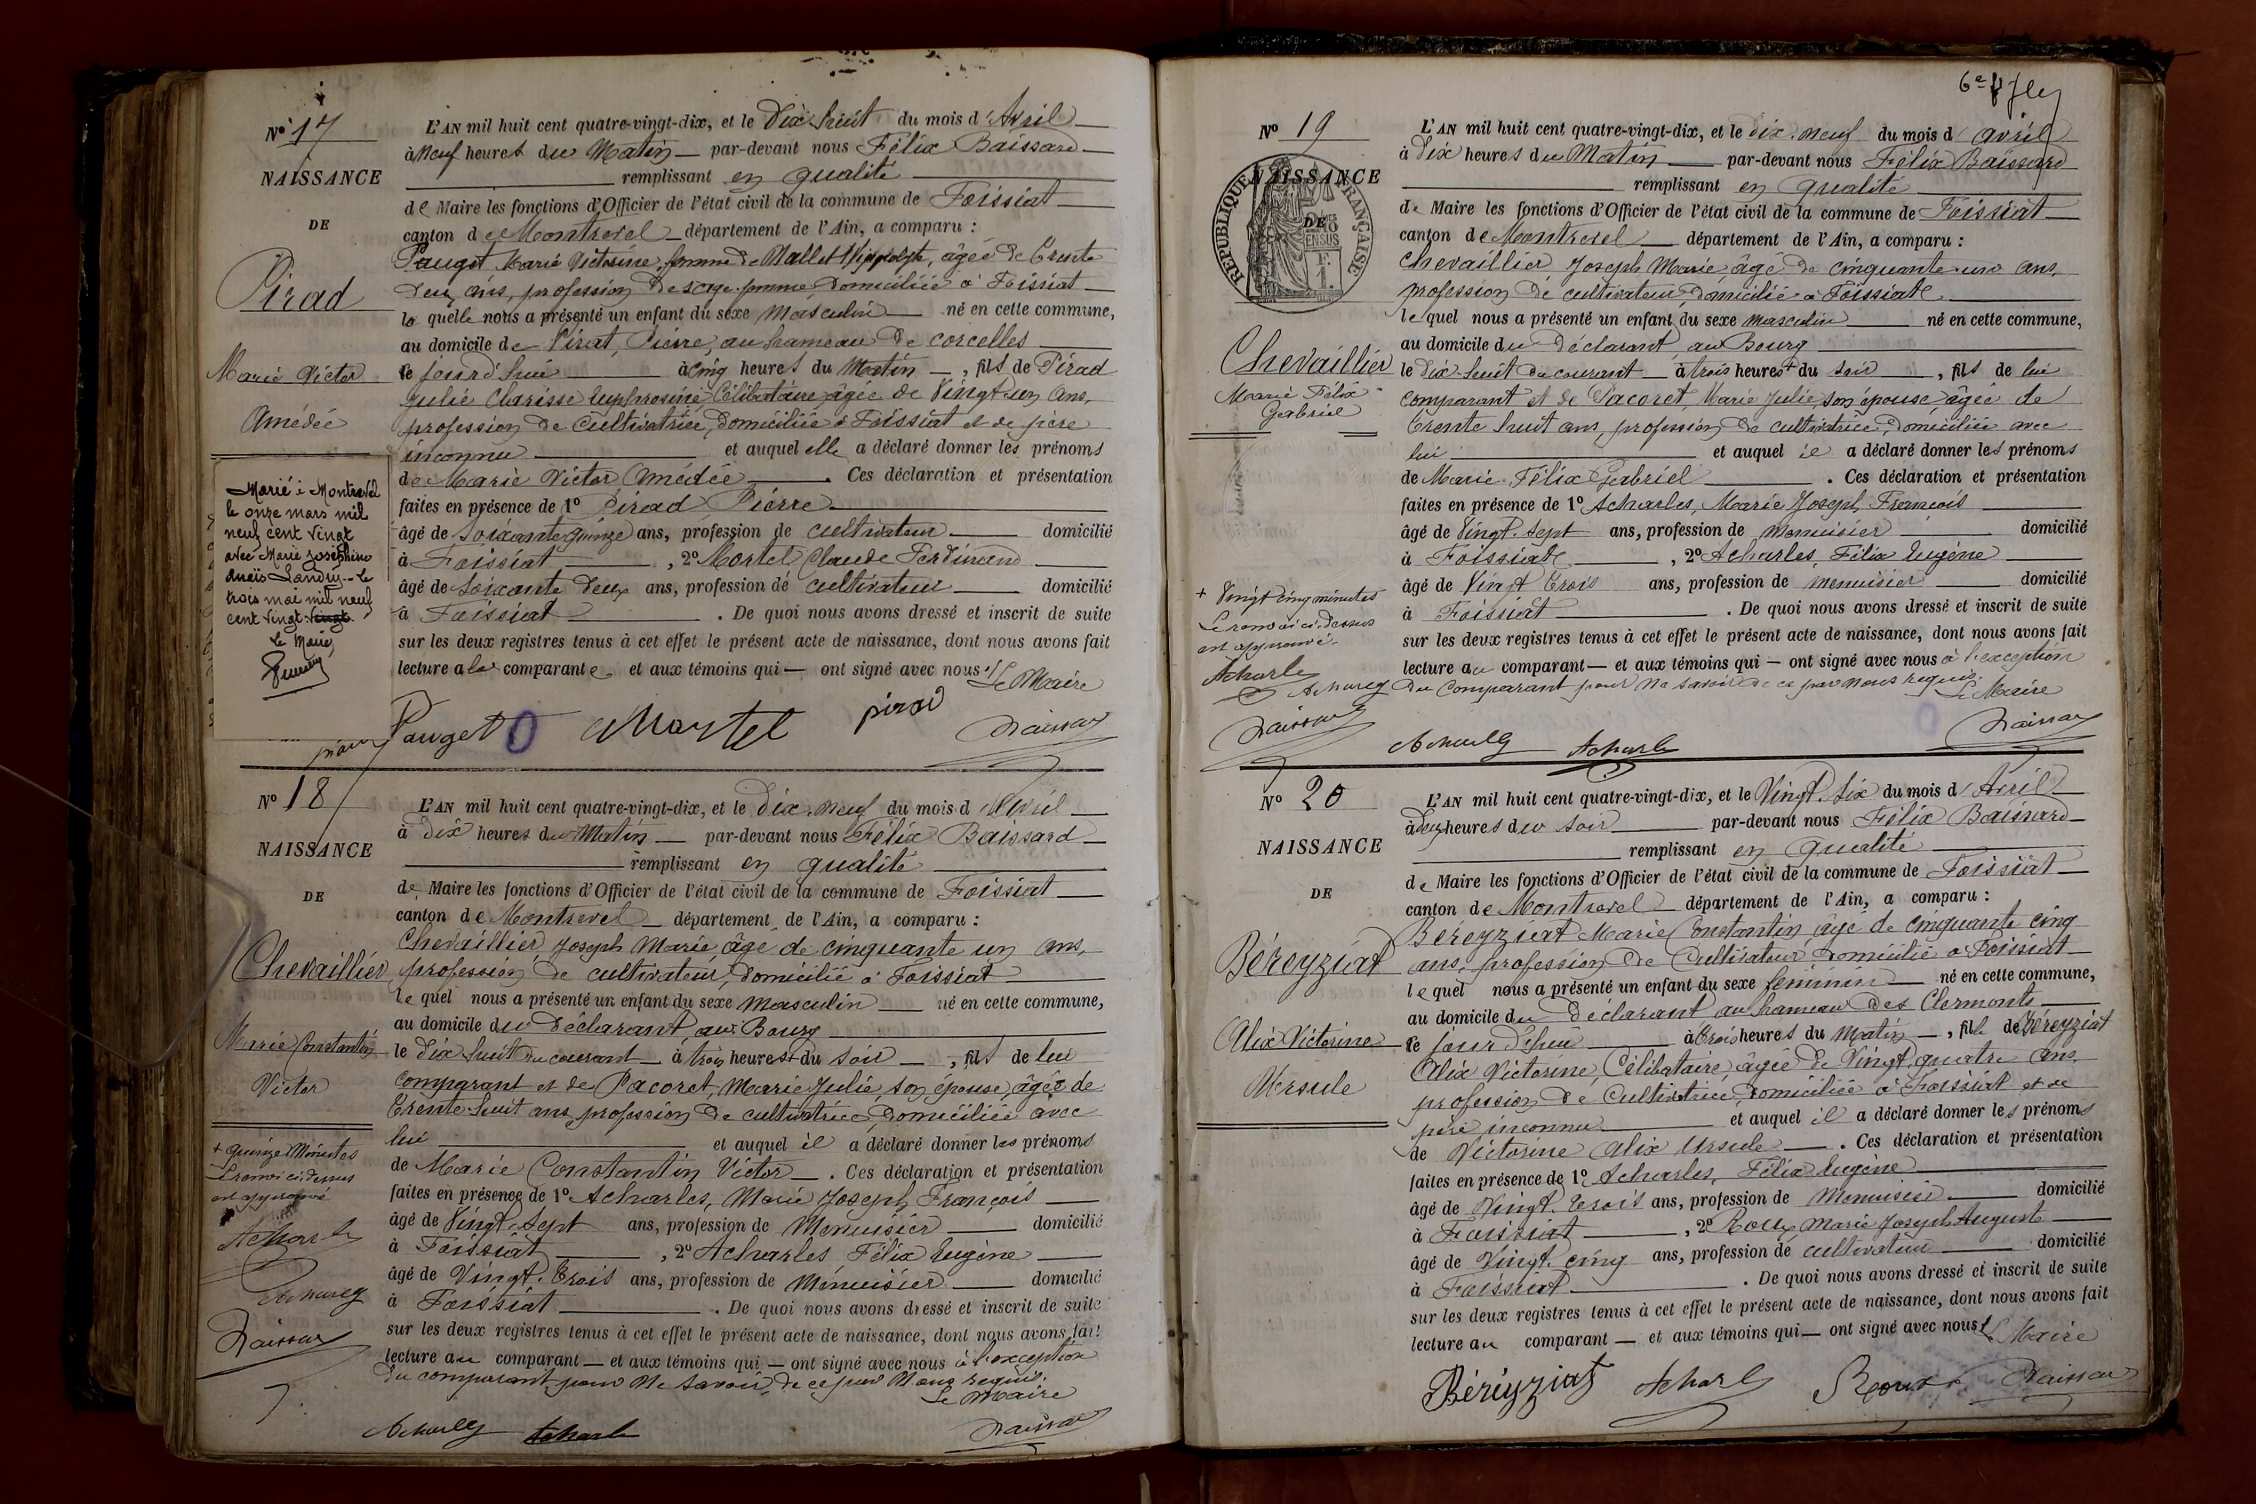 Nº 17
NAISSANCE
DE
Pirad
Marie Victor
Amédée
Marié à Montrevel
le onze mars mil
neuf cent vingt
avec Marie Joséphine
Landry le
trois mai mil neuf
cent vingt vingt
Le Maire
L'AN mil huit cent quatre-vingt-dix, et le Dix huit du mois d'Avril
à Neuf heures du Matin par-devant nous Félix Baissard
remplissant en qualité
de Maire les fonctions d'Officier de l'état civil de la commune de Foissiat
canton de Montrevel département de l'Ain, a comparu :
Pauget Marie Victorine, femme de Mallet Hippolyte, âgée de trente
deux ans, profession de sage-femme, domiciliée à Foissiat
laquelle nous a présenté un enfant du sexe masculin né en cette commune,
au domicile de Pirat, Pierre, au hameau de corcelles
le jourd'hui à cinq heures du Matin, fils de Pirad
Julie Clarisse Euphrosine Célibataire âgée de Vingt un ans,
profession de Cultivatrice, domiciliée à Foissiat et de père
inconnu et auquel elle a déclaré donner les prénoms
de Marie Victor Amédée. Ces déclaration et présentation
faites en présence de 1º Pirad Pierre
âgé de soixante quinze ans, profession de cultivateur domicilié
à Foissiat, 2º Mortel Claude Ferdinand
âgé de soixante deux ans, profession de cultivateur domicilié
à Foissiat. De quoi nous avons dressé et inscrit de suite
sur les deux registres tenus à cet effet le présent acte de naissance, dont nous avons fait
lecture a la comparante et aux témoins qui ont signé avec nous. Le Maire
Pauget Mortel pirad Baissard
Nº 18
NAISSANCE
DE
Chevaillier
Marie Constantin
Victor
+ quinze Minutes
Le renvoi ci-dessus
est approuvé
Acharle
Baissard
L'AN mil huit cent quatre-vingt-dix, et le Dix-neuf du mois d'Avril
à Dix heures du Matin par-devant nous Félix Baissard
remplissant en qualité
de Maire les fonctions d'Officier de l'état civil de la commune de Foissiat
canton de Montrevel département de l'Ain, a comparu :
Chevaillier, Joseph Marie, âgé de cinquante un ans,
profession de cultivateur, domicilié à Foissiat
lequel nous a présenté un enfant du sexe masculin né en cette commune,
au domicile du Déclarant au Bourg
le Dix huit du courant à trois heures+ du soir, fils de lui
comparant et de Pacoret, Marie Julie, son épouse, âgée de
trente-huit ans, profession de cultivatrice, domiciliée avec
lui et auquel il a déclaré donner les prénoms
de Marie Constantin Victor. Ces déclaration et présentation
faites en présence de 1º Acharles, Marie Joseph François
âgé de Vingt-Sept ans, profession de Menuisier domicilié
à Foissiat, 2º Acharles, Félix Eugène
âgé de Vingt-trois ans, profession de Menuisier domicilié
à Foissiat. De quoi nous avons dressé et inscrit de suite
sur les deux registres tenus à cet effet le présent acte de naissance, dont nous avons fait
lecture au comparant et aux témoins qui ont signé avec nous à l'exception
du comparant pour ne savoir, de ce par nous requis.
Le Maire
Acharle Baissard
6e
Nº 19
NAISSANCE
DE
REPUBLIQUE FRANÇAISE
Chevaillier
Marie Félix
Gabriel
+ Vingt cinq minutes
Le renvoi ci-dessus
est approuvé.
Acharle
Baissard
L'AN mil huit cent quatre-vingt-dix, et le dix-neuf du mois d'avril
à Dix heures du Matin par-devant nous Félix Baissard
remplissant en qualité
de Maire les fonctions d'Officier de l'état civil de la commune de Foissiat
canton de Montrevel département de l'Ain, a comparu :
Chevaillier, Joseph Marie, âgé de cinquante-un ans,
profession de cultivateur, domicilié à Foissiat
lequel nous a présenté un enfant du sexe masculin né en cette commune,
au domicile du Déclarant, au Bourg
le Dix-huit du courant à trois heures+ du soir, fils de lui
comparant et de Pacoret, Marie Julie, son épouse, âgée de
trente huit ans, profession de cultivatrice, domiciliée avec
lui et auquel il a déclaré donner les prénoms
de Marie Félix Gabriel. Ces déclaration et présentation
faites en présence de 1º Acharles, Marie Joseph François
âgé de Vingt-sept ans, profession de Menuisier domicilié
à Foissiat, 2º Acharles, Félix Eugène
âgé de Vingt trois ans, profession de menuisier domicilié
à Foissiat. De quoi nous avons dressé et inscrit de suite
sur les deux registres tenus à cet effet le présent acte de naissance, dont nous avons fait
lecture au comparant et aux témoins qui ont signé avec nous à l'exception
du comparant pour ne savoir de ce par nous requis.
Le Maire
Acharle Baissard
Nº 20
NAISSANCE
DE
Béreyziat
Alix Victorine
Ursule
L'AN mil huit cent quatre-vingt-dix, et le Vingt-six du mois d'Avril
à deux heures du soir par-devant nous Félix Baissard
remplissant en qualité
de Maire les fonctions d'Officier de l'état civil de la commune de Foissiat
canton de Montrevel département de l'Ain, a comparu :
Béreyziat Marie Constantin, âgé de cinquante cinq
ans, profession de Cultivateur, domicilié à Foissiat
lequel nous a présenté un enfant du sexe féminin né en cette commune,
au domicile du Déclarant au hameau des Clermonts
le jour d'hui à trois heures du Matin, fille de Béreyziat
Alix Victorine, Célibataire, âgée de Vingt-quatre ans
profession de Cultivatrice, domiciliée à Foissiat et de
père inconnu et auquel il a déclaré donner les prénoms
de Victorine Alix Ursule. Ces déclaration et présentation
faites en présence de 1º Acharles, Félix Eugène
âgé de Vingt-trois ans, profession de Menuisier domicilié
à Foissiat, 2º Roux Marie Joseph Auguste
âgé de Vingt-cinq ans, profession de cultivateur domicilié
à Foissiat. De quoi nous avons dressé et inscrit de suite
sur les deux registres tenus à cet effet le présent acte de naissance, dont nous avons fait
lecture au comparant et aux témoins qui ont signé avec nous. Le Maire
Béreyziat Acharle Roux Baissard